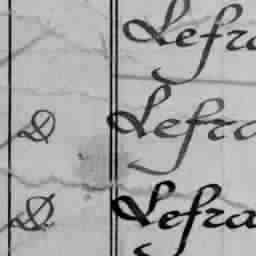 Lefra
D Lefra
D Lefra